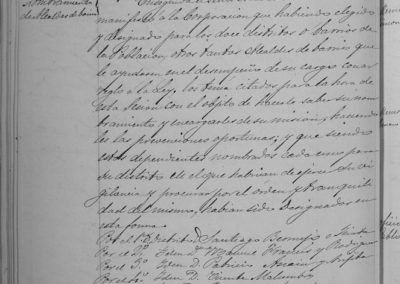 Nombramiento
de Alcaldes de barrio
manifestó a la Corporacion que habiendo elegido
y designado para los doce distritos o barrios de
la Poblacion, otros tantos Alcaldes de barrio que
le ayudasen en el desempeño de su cargo con ar
reglo a la Ley, los tenia citados para la hora de
esta sesion con el objeto de hacerle saber su nom
bramiento y encargarles de su mision, haciendo
les las prevenciones oportunas; y que siendo
estos dependientes nombrados cada uno para
su distrito en el que habrian de ejercer su vi
gilancia y procurar por el orden y tranquili
dad del mismo, habian sido designados en
esta forma.
Por el 1º Distrito D. Santiago Bermejo
Por el 2º Idem D. Manuel
Por el 3º Idem D. Patricio
Por el 4º Idem D. Vicente